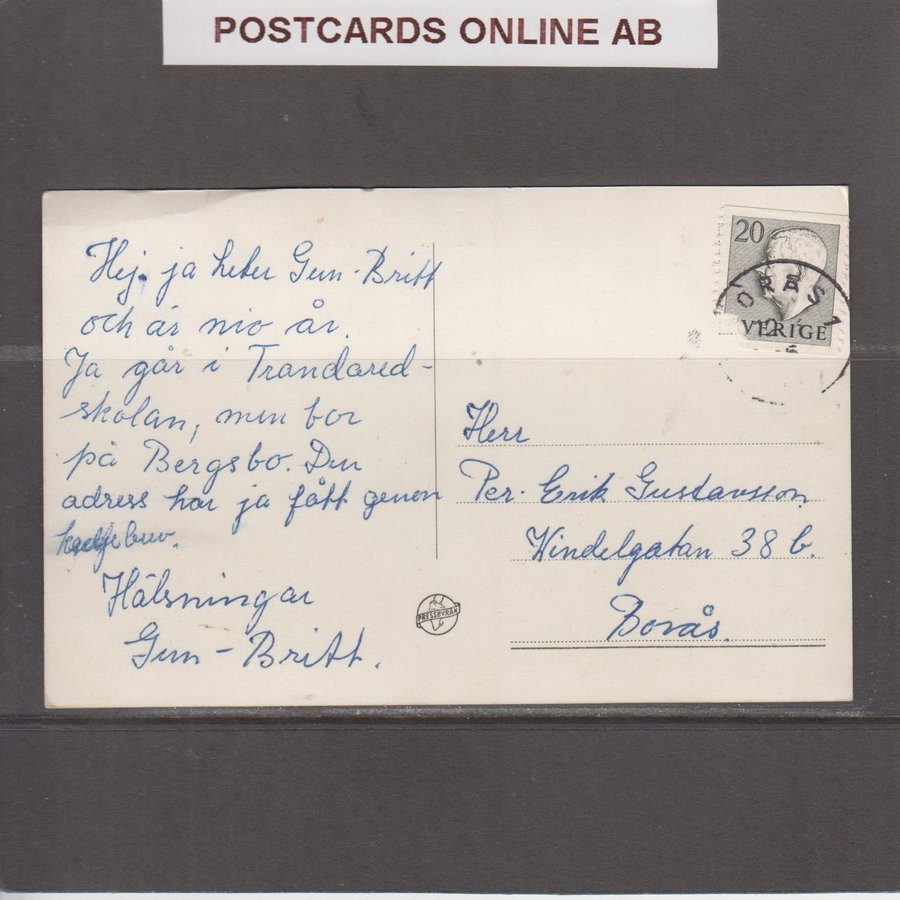 POSTCARDS ONLINE AB
Hej. ja heter Gun-Britt
och är nio år.
Ja går i Trandared-
skolan, men bor
på Bergsbo. Din
adress har ja fått genom
kedjebrev.
Hälsningar
Gun-Britt.
20
SVERIGE
BORÅS 1
PRESSBYRÅN
Herr
Per-Erik Gustavsson
Vindelgatan 38 b.
Borås.